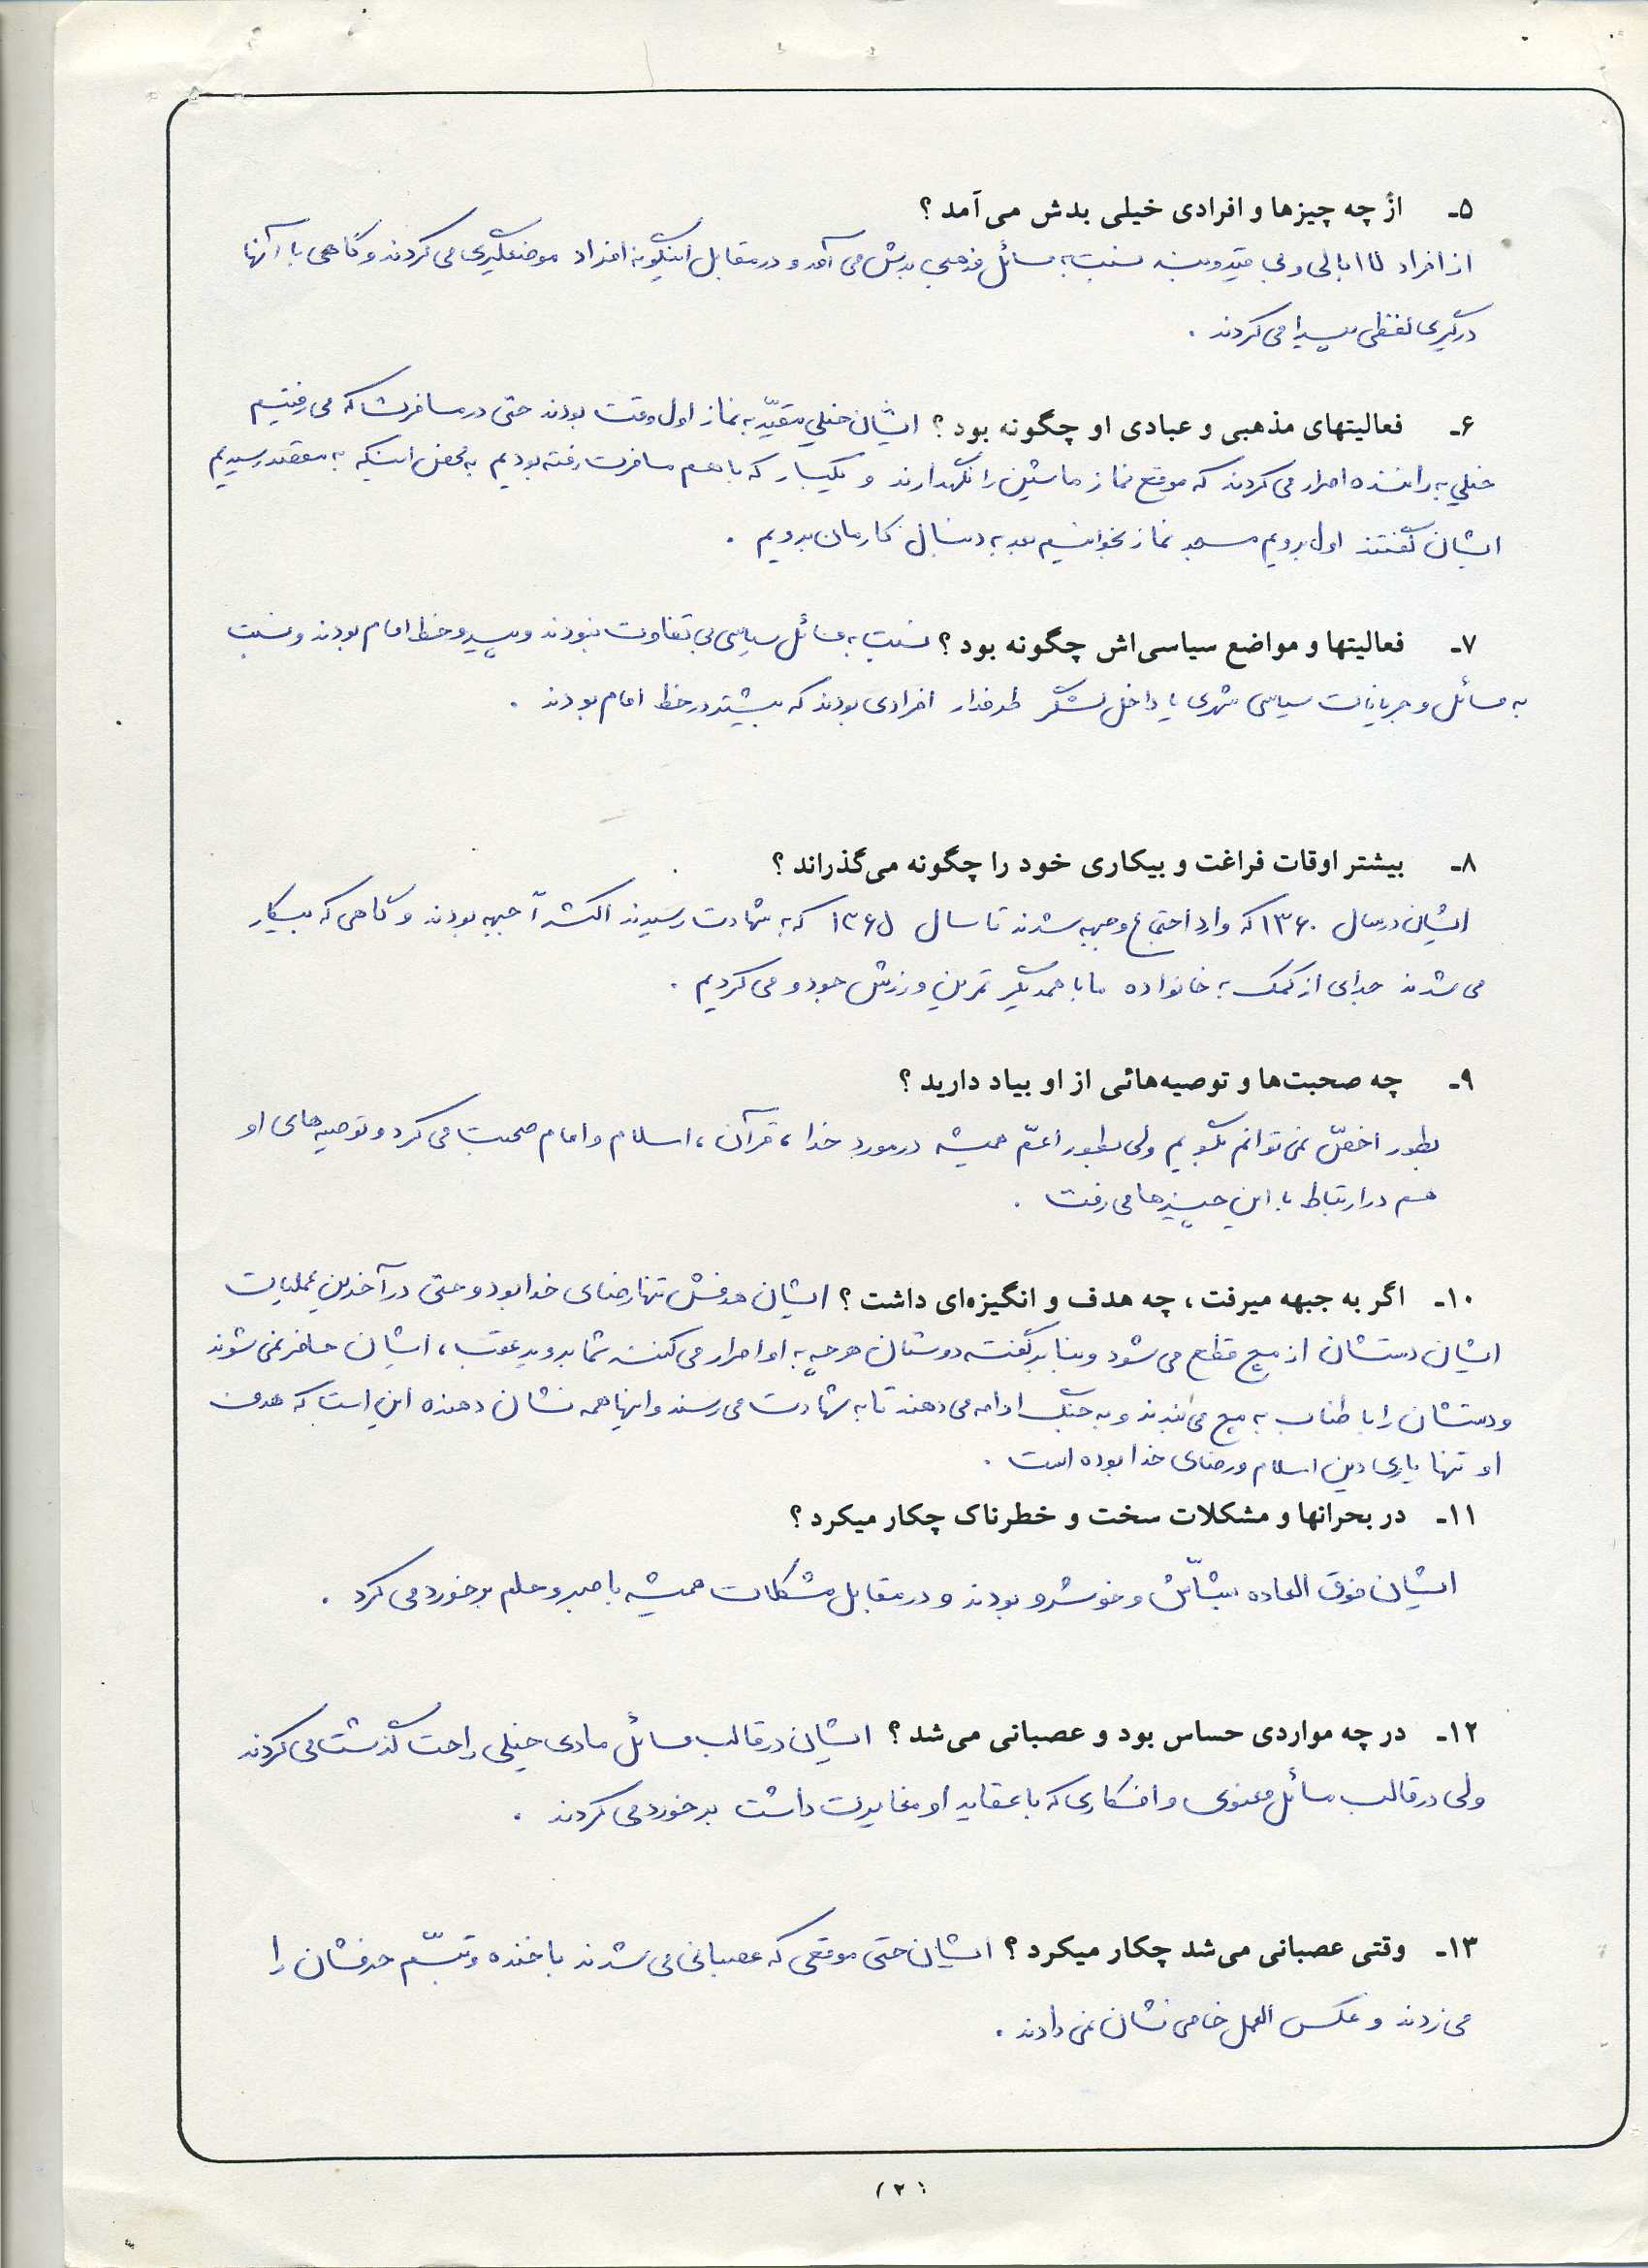 ۵ـ از چه چیزها و افرادی خیلی بدش می‌آمد ؟
از افراد لاابالی و بی قید و بند نسبت به مسائل مذهبی بدش می آمد و در مقابل اینگونه افراد موضعگیری می کردند و گاهی با آنها
درگیری لفظی پیدا می کردند .
۶ـ فعالیتهای مذهبی و عبادی او چگونه بود ؟ ایشان خیلی مقیّد به نماز اول وقت بودند حتی در مسافرت که می رفتیم
خیلی به راننده اصرار می کردند که موقع نماز ماشین را نگهدارند و یکبار که با هم مسافرت رفته بودیم به محض اینکه به مقصد رسیدیم
ایشان گفتند اول برویم مسجد نماز بخوانیم بعد به دنبال کارمان برویم .
۷ـ فعالیتها و مواضع سیاسی‌اش چگونه بود ؟ نسبت به مسائل سیاسی بی تفاوت نبودند و پیرو خط امام بودند و نسبت
به مسائل و جریانات سیاسی شهری یا داخل لشگر طرفدار افرادی بودند که بیشتر در خط امام بودند .
۸ـ بیشتر اوقات فراغت و بیکاری خود را چگونه می‌گذراند ؟
ایشان در سال ۱۳۶۰ که وارد اجتماع و جبهه شدند تا سال ۱۳۶۵ که به شهادت رسیدند اکثراً جبهه بودند و گاهی که بیکار
می شدند جدای از کمک به خانواده ما با همدیگر تمرین ورزش جودو می کردیم .
۹ـ چه صحبت‌ها و توصیه‌هائی از او بیاد دارید ؟
بطور اخصّ نمی توانم بگویم ولی بطور اعمّ همیشه در مورد خدا ، قرآن ، اسلام و امام صحبت می کرد و توصیه های او
هم در ارتباط با این چیزها می رفت .
۱۰ـ اگر به جبهه میرفت ، چه هدف و انگیزه‌ای داشت ؟ ایشان هدفش تنها رضای خدا بود و حتی در آخرین عملیات
ایشان دستشان از مچ قطع می شود و بنا بر گفته دوستان هر چه به او اصرار می کنند شما بروید عقب ، ایشان حاضر نمی شوند
و دستشان را با طناب به مچ می بندند و به جنگ ادامه می دهند تا به شهادت می رسند و اینها همه نشان دهنده این است که هدف
او تنها یاری دین اسلام و رضای خدا بوده است .
۱۱ـ در بحرانها و مشکلات سخت و خطرناک چکار میکرد ؟
ایشان فوق العاده بشّاش و خوشرو بودند و در مقابل مشکلات همیشه با صبر و حلم برخورد می کرد .
۱۲ـ در چه مواردی حساس بود و عصبانی می‌شد ؟ ایشان در قالب مسائل مادی خیلی راحت گذشت می کردند
ولی در قالب مسائل معنوی و افکاری که با عقاید او مغایرت داشت برخورد می کردند .
۱۳ـ وقتی عصبانی می‌شد چکار میکرد ؟ ایشان حتی موقعی که عصبانی می شدند با خنده و تبسّم حرفشان را
می زدند و عکس العمل خاصی نشان نمی دادند .
( ۲ )